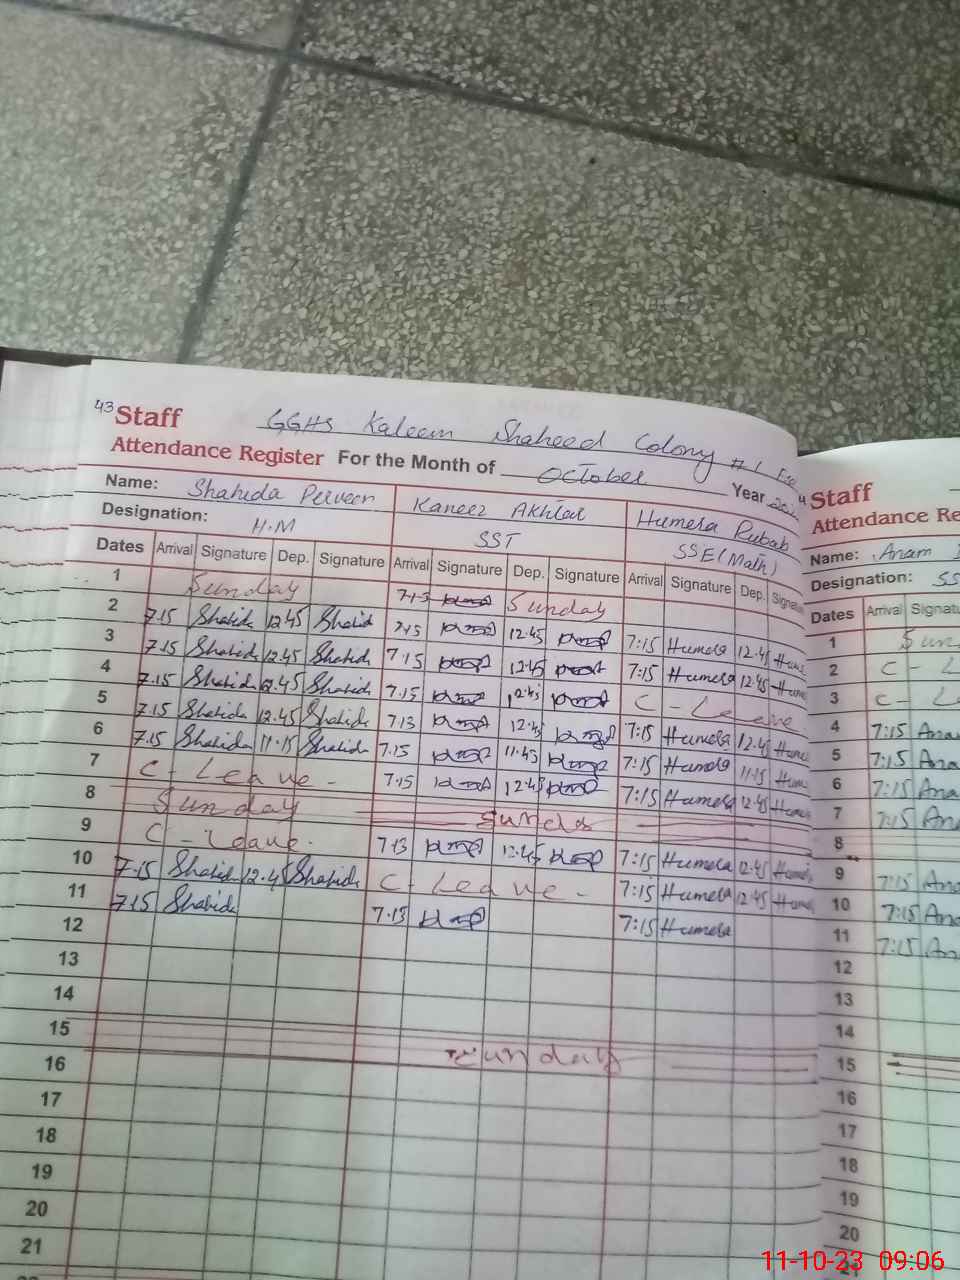 43 Staff GGHS Kaleem Shaheed Colony #1
Attendance Register For the Month of October Year
Name: Shahida Perveen Kaneez Akhtar Humera Rubab
Designation: H.M SST SSE (Math)
Dates Arrival Signature Dep. Signature Arrival Signature Dep. Signature Arrival Signature Dep. Signatu
1 Sunday 7.15 Sunday
2 7.15 Shahida 12.45 Shahid 7.15 12.45 7:15 Humera 12.45 Hum
3 7.15 Shahida 12.45 Shahida 7.15 12.45 7:15 Humera 12.45 Hum
4 7.15 Shahida 12.45 Shahida 7.15 12.45 C - Leave
5 7.15 Shahida 12.45 Shahida 7.13 12.45 7:15 Humera 12.45 Hum
6 7.15 Shahida 11.15 Shahida 7.15 11.45 7:15 Humera 11.15 Hum
7 C - Leave - 7.15 12.45 7:15 Humera 12.45 Hum
8 Sunday Sunda
9 C - Leave. 7.13 12.45 7:15 Humera 12.45 Hum
10 7.15 Shahid 12.45 Shahida C - Leave - 7:15 Humera 12.45 Hum
11 7.15 Shahida 7.13 7:15 Humera
12
13
14
15 Sunday
16
17
18
19
20
21
Staff
Attendance Re
Name: Anam
Designation: SS
Dates Arrival Signatu
1 Sun
2 C L
3 C - L
4 7:15 Ana
5 7:15 Ana
6 7:15 Ana
7 7:15 An
8
9 7:15 Ana
10 7:15 Ana
11 7:15 An
12
13
14
15
16
17
18
19
20
21
11-10-23 09:06